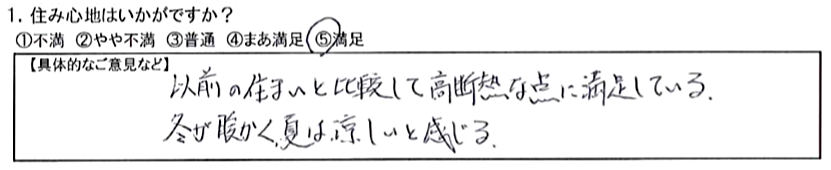 1. 住み心地はいかがですか？
①不満 ②やや不満 ③普通 ④まあ満足 ⑤満足
【具体的なご意見など】
以前の住まいと比較して高断熱な点に満足している.
冬が暖かく,夏は涼しいと感じる.